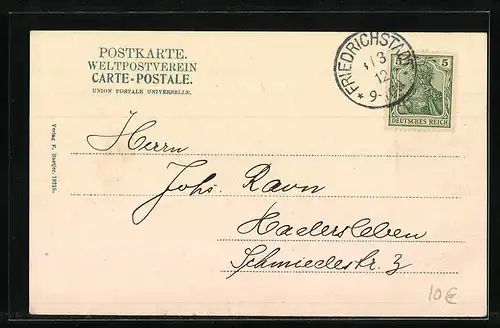 POSTKARTE.
WELTPOSTVEREIN
CARTE-POSTALE.
UNION POSTALE UNIVERSELLE.
* FRIEDRICHSTADT
3
12
9-
5
DEUTSCHES REICH
Herrn
Johs. Ravn
Hadersleben
Schmiedestr. 3
Verlag
10€